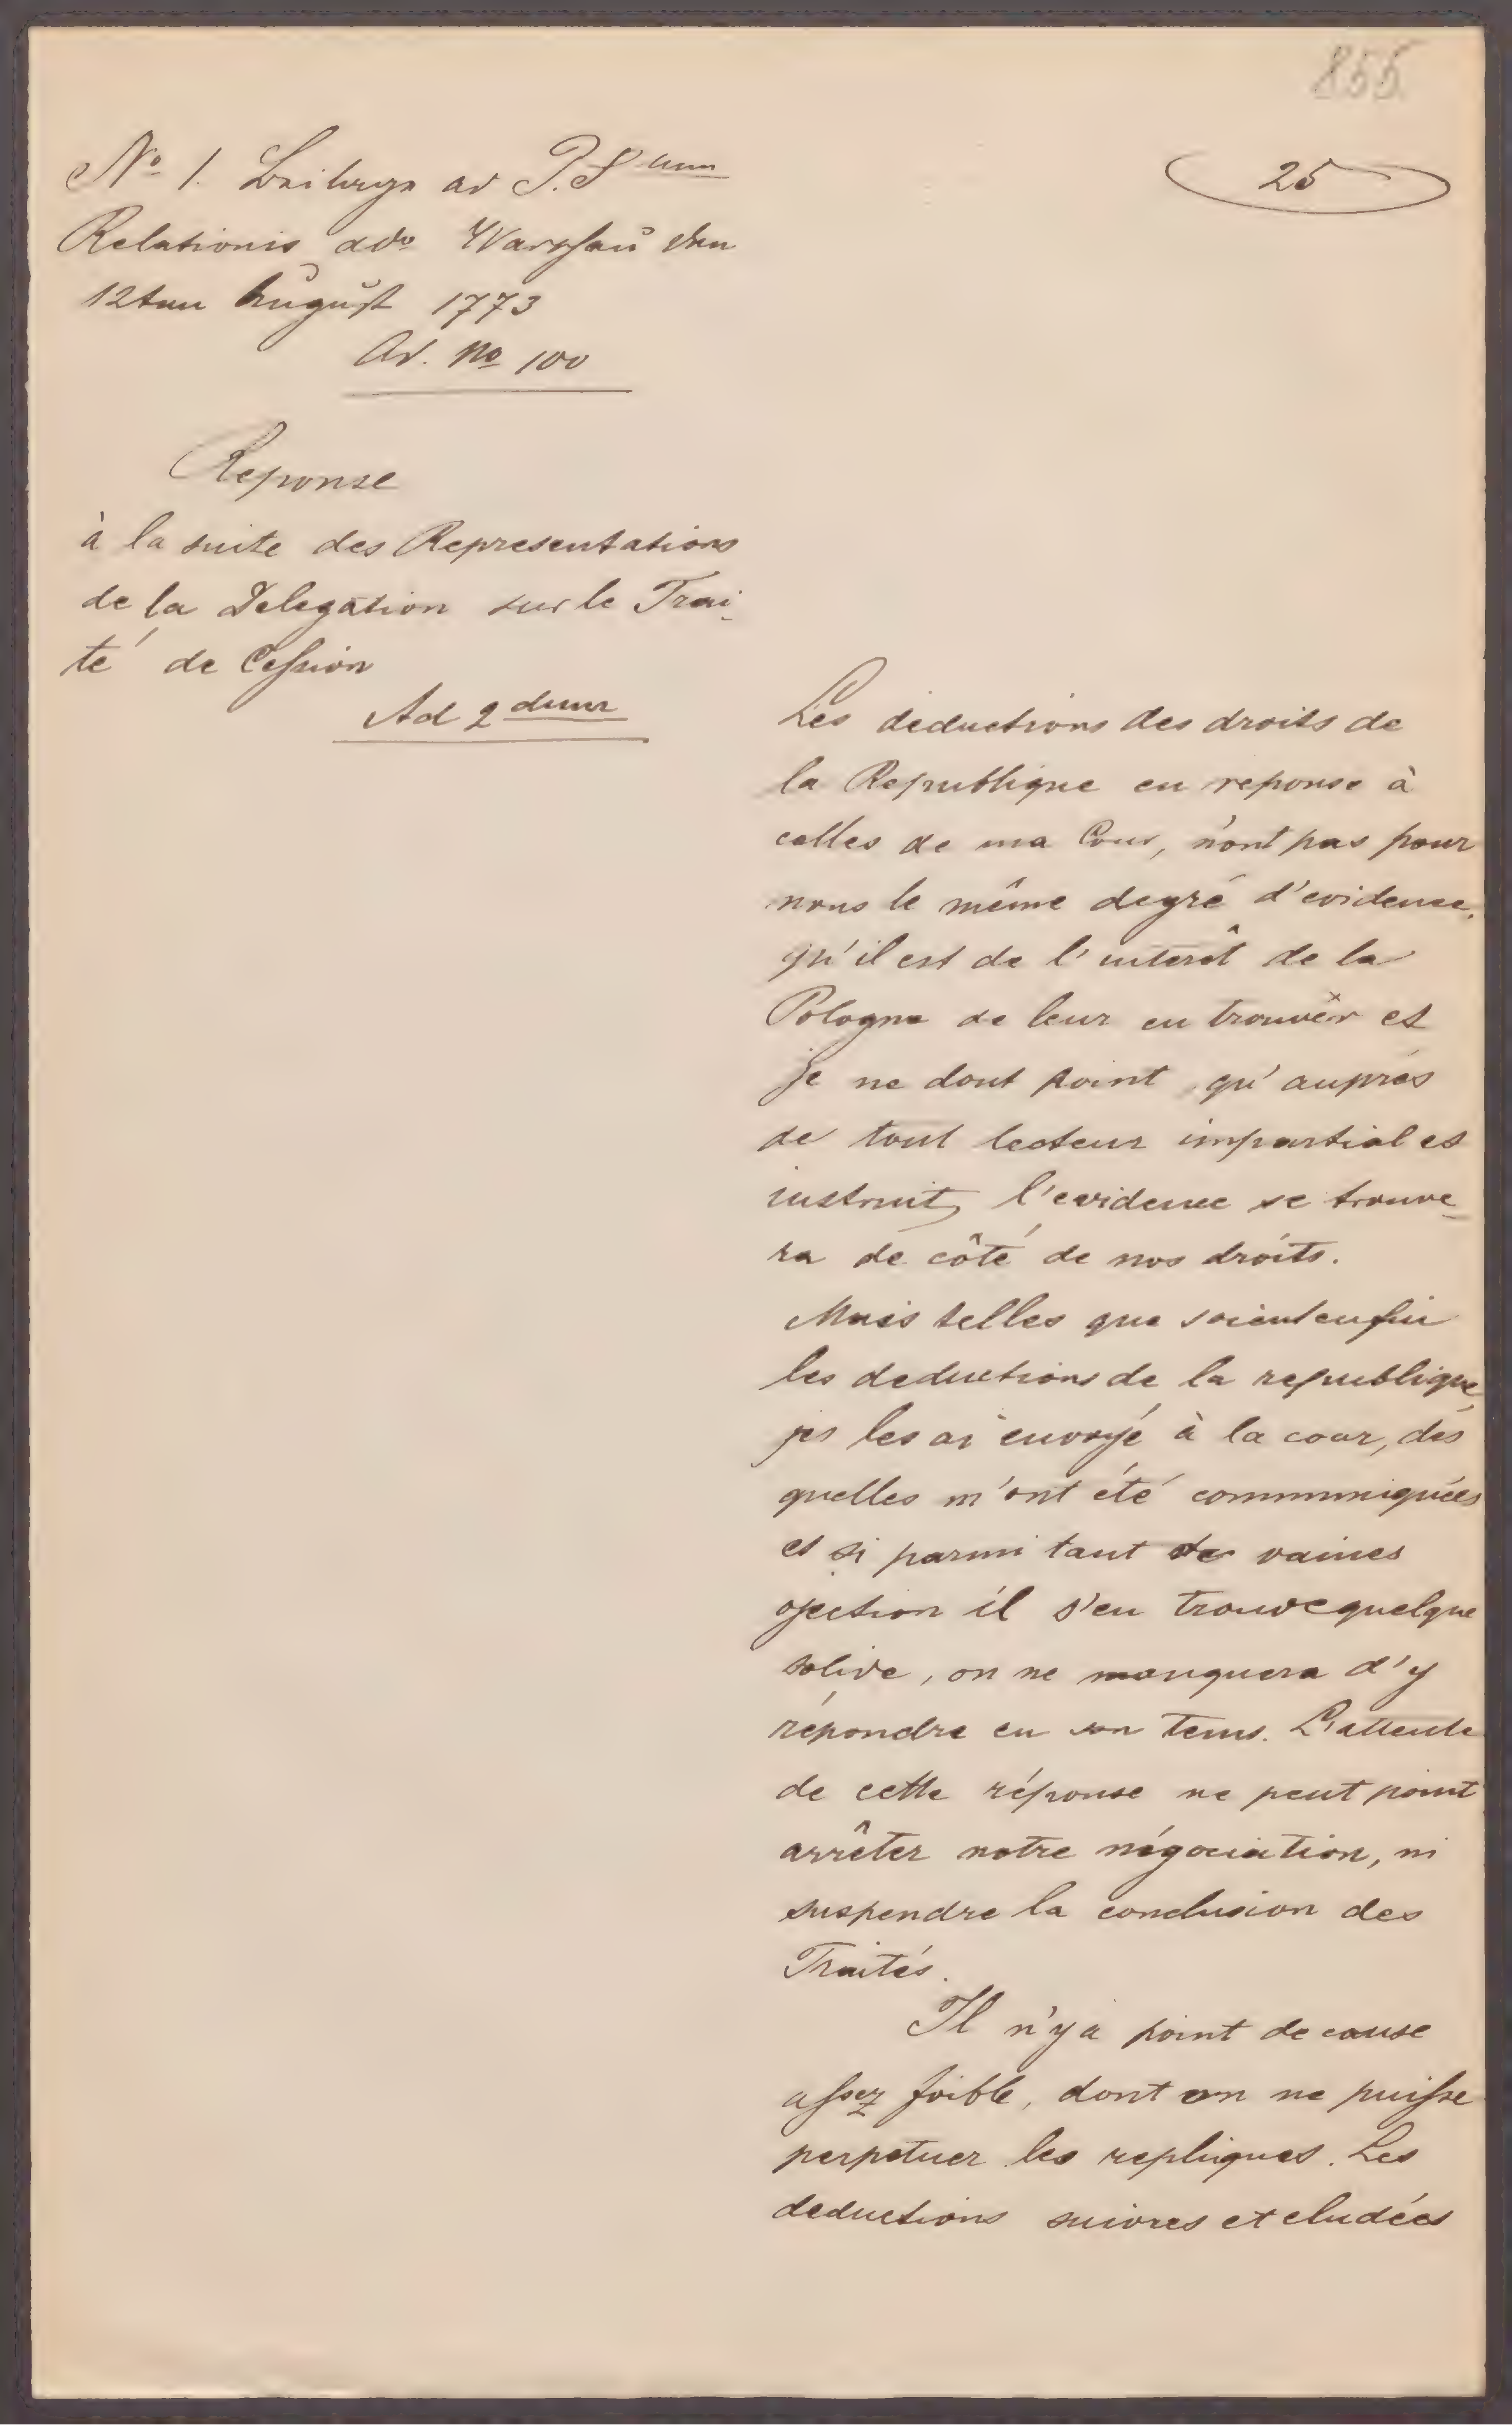 855
25
No 1. Beilage ad P.S. num
Relationis ddo Warschau den
12ten August 1773
Ad. No 100
Reponse
à la suite des Representations
de la Delegation sur le Trai-
té de Cession
Ad 2 dum
Les deductions des droits de
la Republique en reponse à
celles de ma Cour, n'ont pas pour
nous le même degré d'evidence,
qu'il est de l'interêt de la
Pologne de leur en trouver et
je ne dout point qu'auprés
de tout lecteur impartial et
instruit, l'evidence se trouve-
ra de côté de nos droits.
Mais telles que soient enfin
les deductions de la republique,
je les ai envoyé à la cour, dés
quelles m'ont été communiquées
et si parmi tant de vaines
ojection il s'en trouve quelque
solide, on ne manquera d'y
répondre en son tems. L'attente
de cette réponse ne peut point
arrêter notre négociation, ni
suspendre la conclusion des
Traités.
Il n'y a point de cause
assez foible, dont on ne puisse
perpetuer les repliques. Les
deductions suivies et eludées